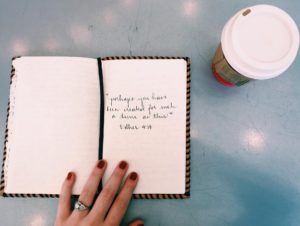 "perhaps you have
been created for such
a time as this"
Esther 4:14